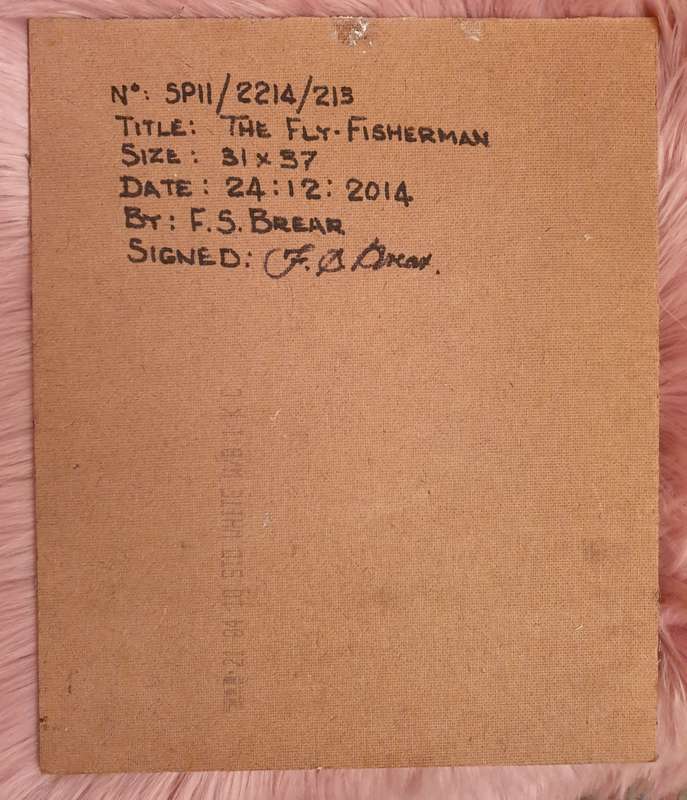 N°: SP11/2214/213
TITLE: THE FLY-FISHERMAN
SIZE: 31 x 37
DATE: 24:12: 2014
BY: F.S. BREAR
SIGNED: F. S Brear.